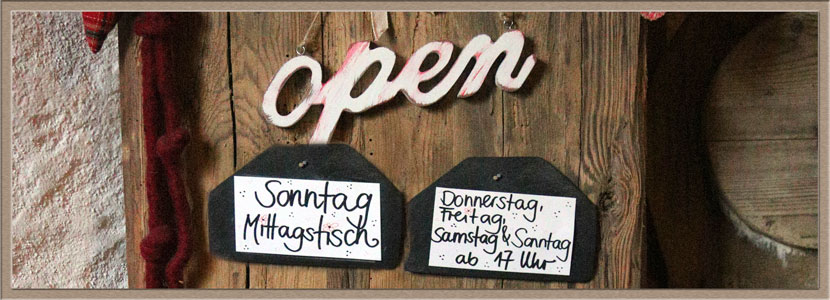 open
Sonntag
Mittagstisch
Donnerstag,
Freitag,
Samstag & Sonntag
ab 17 Uhr